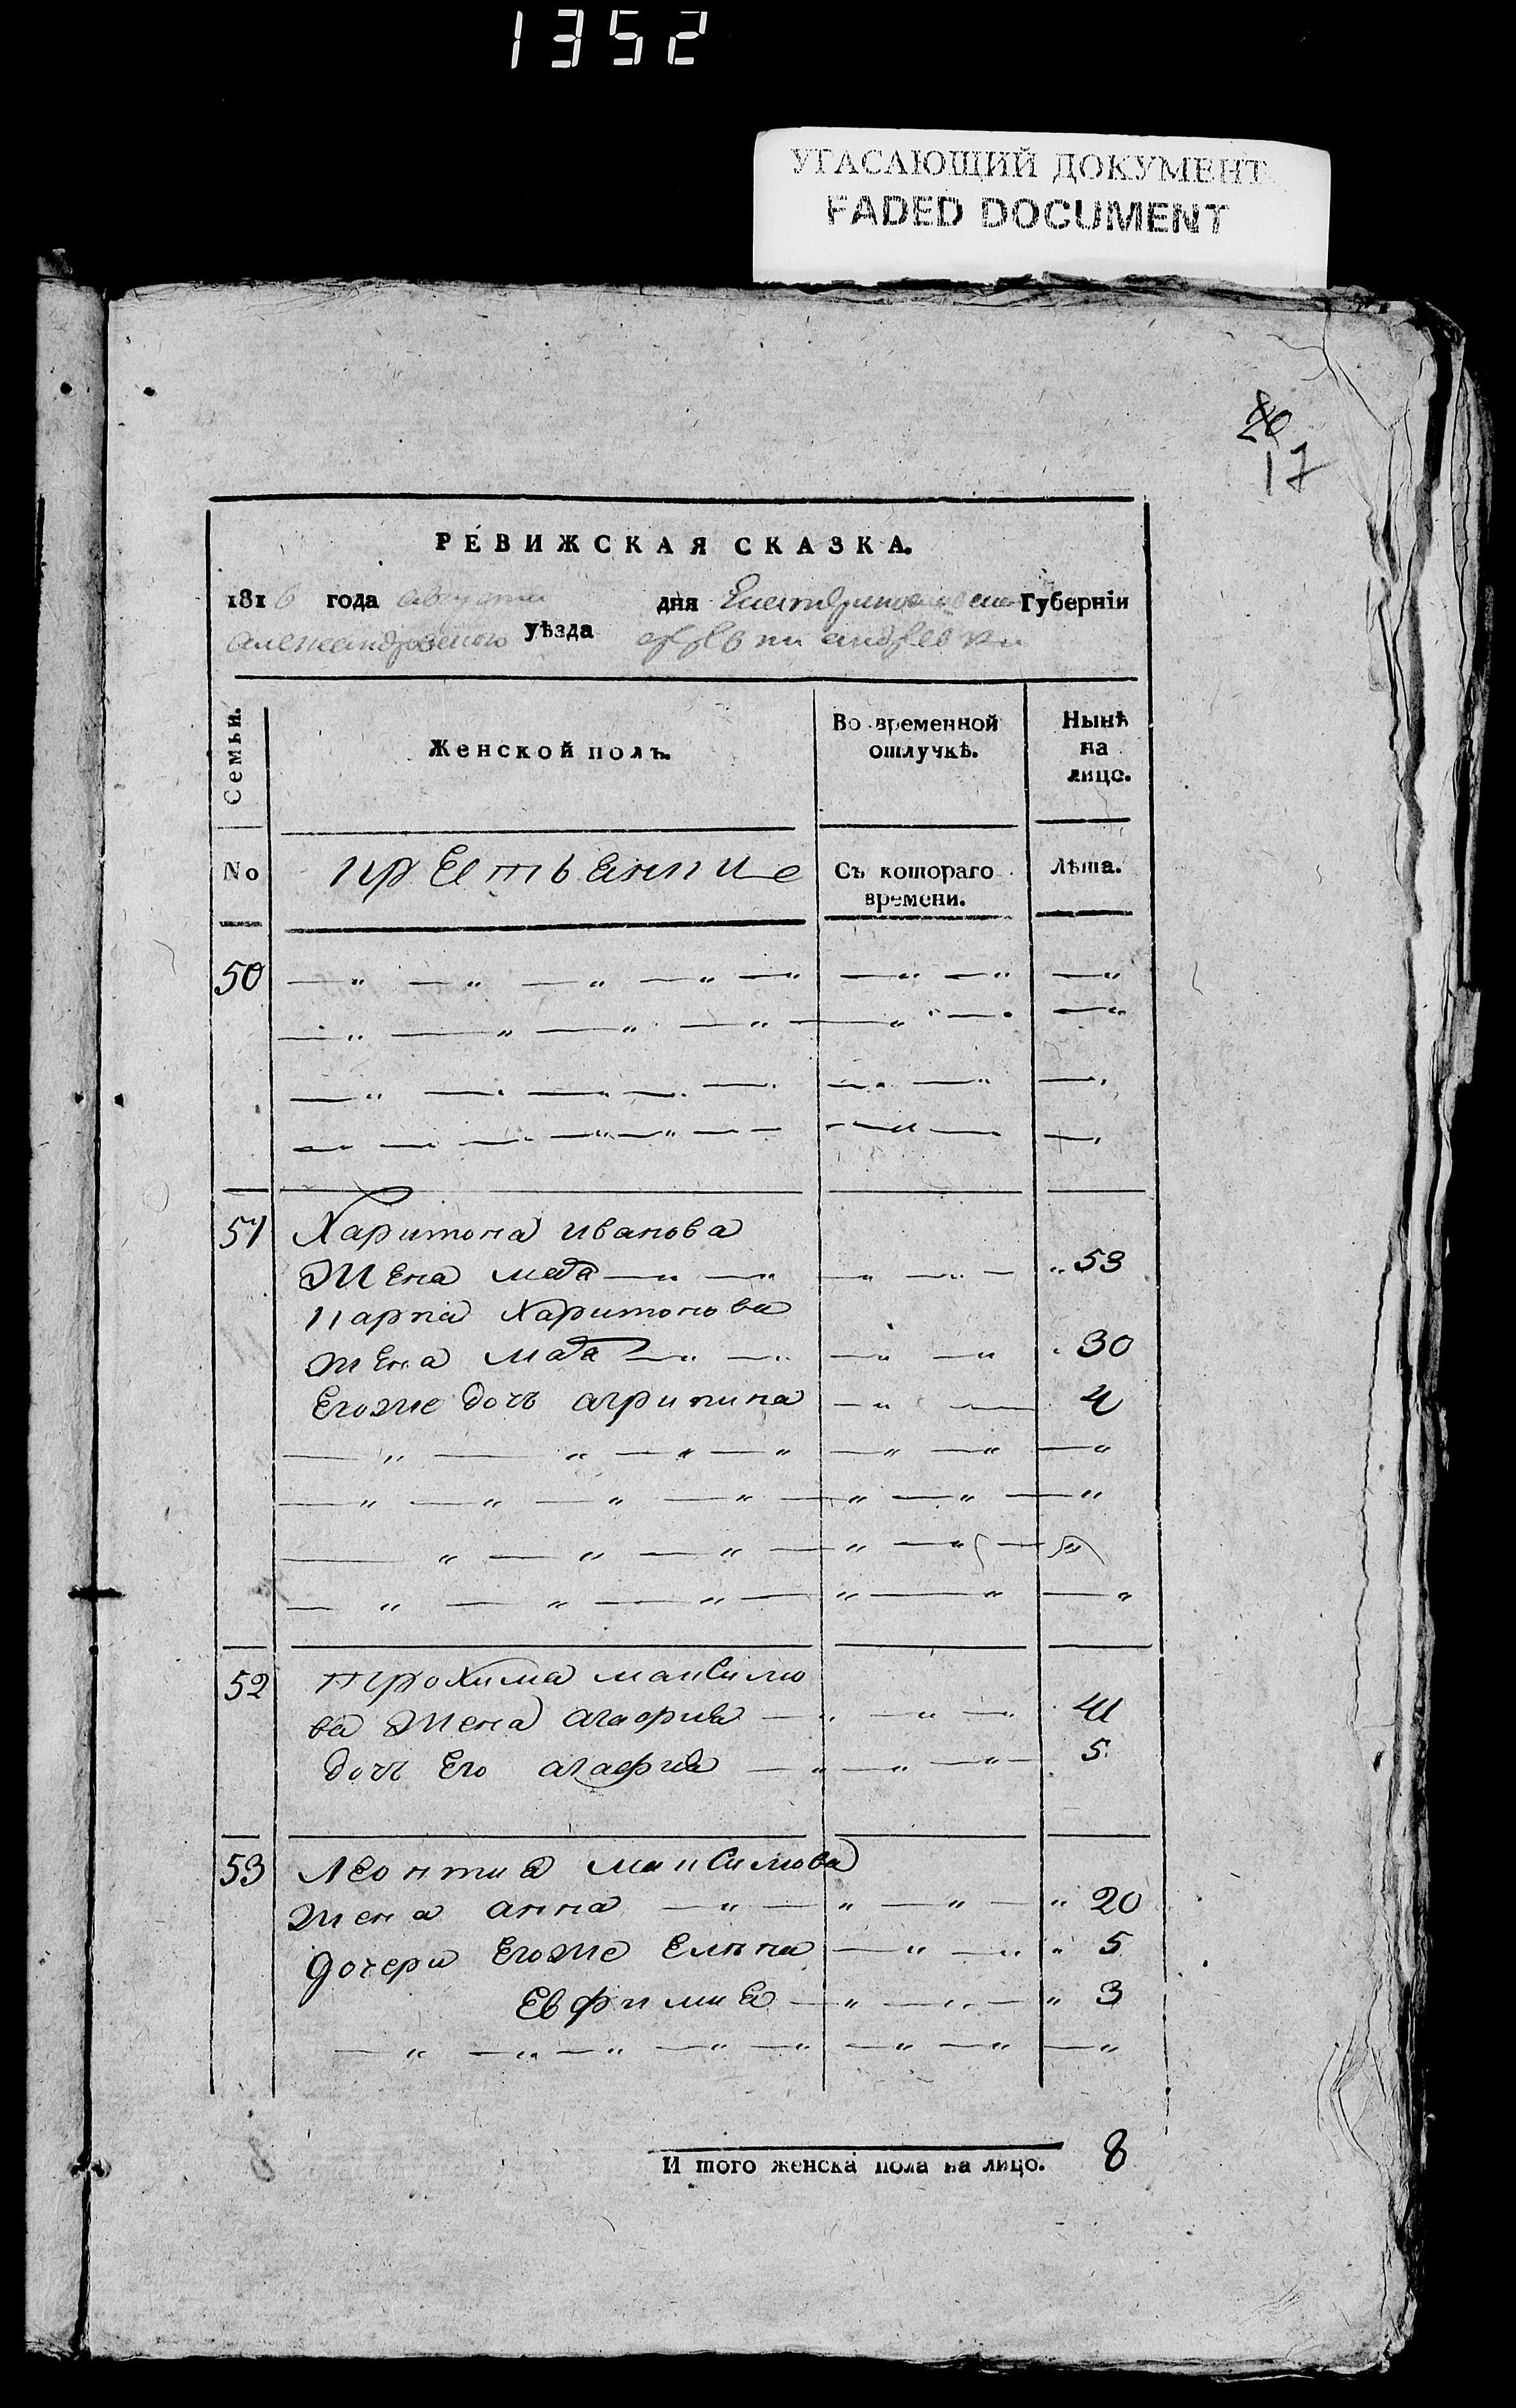 1352
УГАСАЮЩИЙ ДОКУМЕНТ
FADED DOCUMENT
20
17
РЕВИЖСКАЯ СКАЗКА.
1816 года августа дня Екатеринославской Губерніи
александровского уѣзда деревни андреевки
Семьи.
Женской полъ.
Во временной отлучкѣ.
Нынѣ на лицо.
No
крестьянние
Съ котораго времени.
Лѣта.
50
51 Харитона иванова
жена мат 53
Карпа Харитонова
жена мат 30
Егоже дочь агрипина 4
52 трохима максимо
ва жена агафия 41
дочь Его агафия 5
53 Леонтия максимова
жена анна 20
дочери Егоже Елена 5
Евфимия 3
И того женска пола на лицо. 8